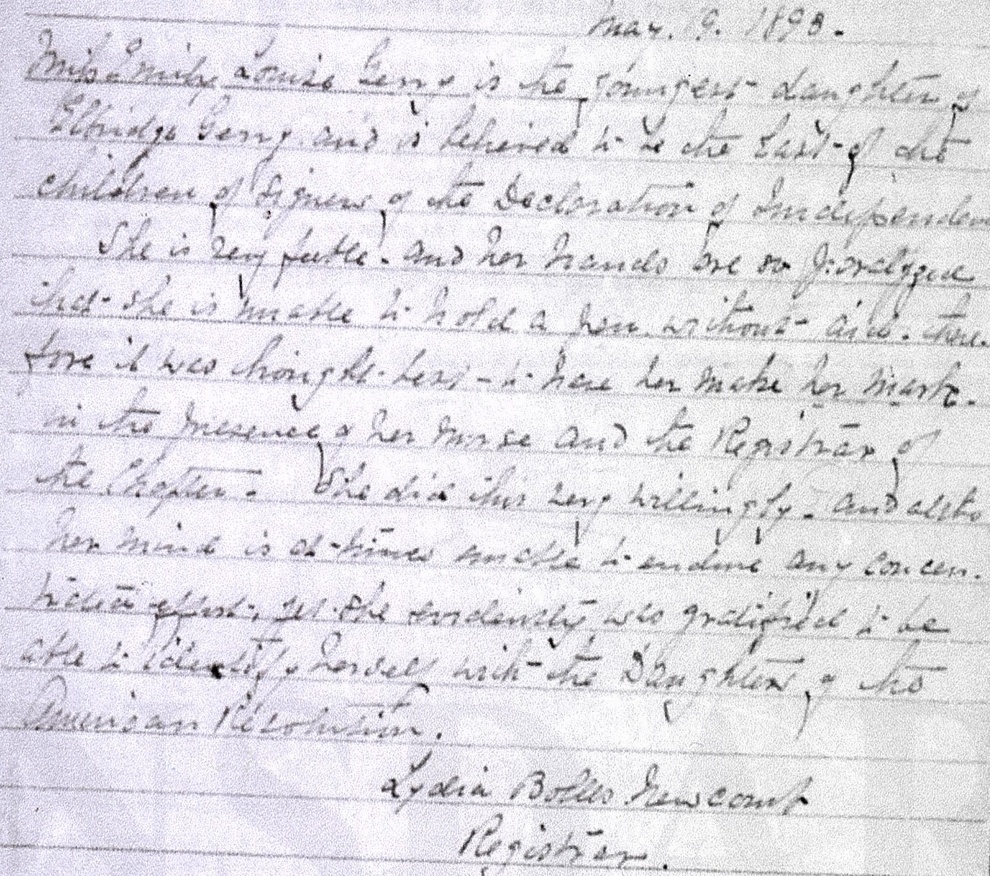 May. 19. 1893.
Miss Emily Louise Gerry is the youngest daughter of
Elbridge Gerry and is believed to be the last of the
children of Signers of the Declaration of Independen
She is very feeble. and her hands are so
that she is unable to hold a pen without aid. there-
fore it was thought best to have her make her mark.
in the presence of her nurse and the Registrar of
the Chapter. She did this very willingly. and altho
her mind is at times unable to endure any concen-
trated effort, yet she evidently was gratified to be
able to identify herself with the Daughters of the
American Revolution.
Lydia Bolles Newcomb
Registrar.